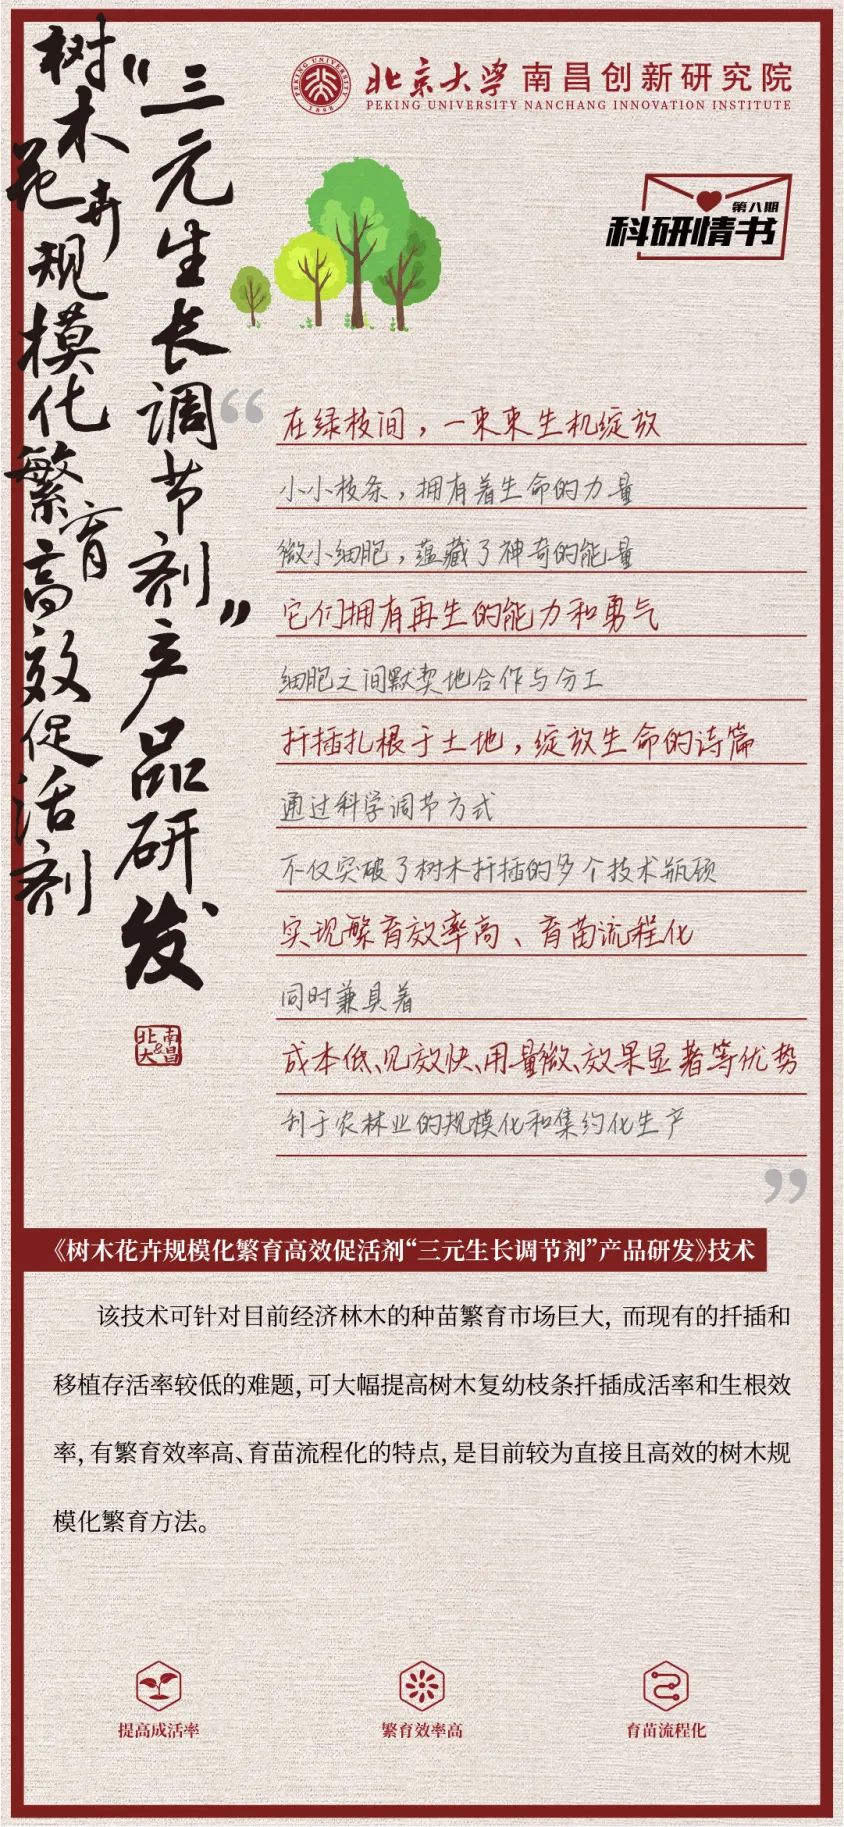 北京大学 南昌创新研究院
PEKING UNIVERSITY NANCHANG INNOVATION INSTITUTE
PEKING UNIVERSITY
1898
第八期
科研情书
树木花卉规模化繁育高效促活剂
“三元生长调节剂”产品研发
北大&南昌
“
在绿枝间，一束束生机绽放
小小枝条，拥有着生命的力量
微小细胞，蕴藏了神奇的能量
它们拥有再生的能力和勇气
细胞之间默契地合作与分工
扦插扎根于土地，绽放生命的诗篇
通过科学调节方式
不仅突破了树木扦插的多个技术瓶颈
实现繁育效率高、育苗流程化
同时兼具着
成本低、见效快、用量微、效果显著等优势
利于农林业的规模化和集约化生产
”
《树木花卉规模化繁育高效促活剂“三元生长调节剂”产品研发》技术
该技术可针对目前经济林木的种苗繁育市场巨大，而现有的扦插和
移植存活率较低的难题，可大幅提高树木复幼枝条扦插成活率和生根效
率，有繁育效率高、育苗流程化的特点，是目前较为直接且高效的树木规
模化繁育方法。
提高成活率
繁育效率高
育苗流程化